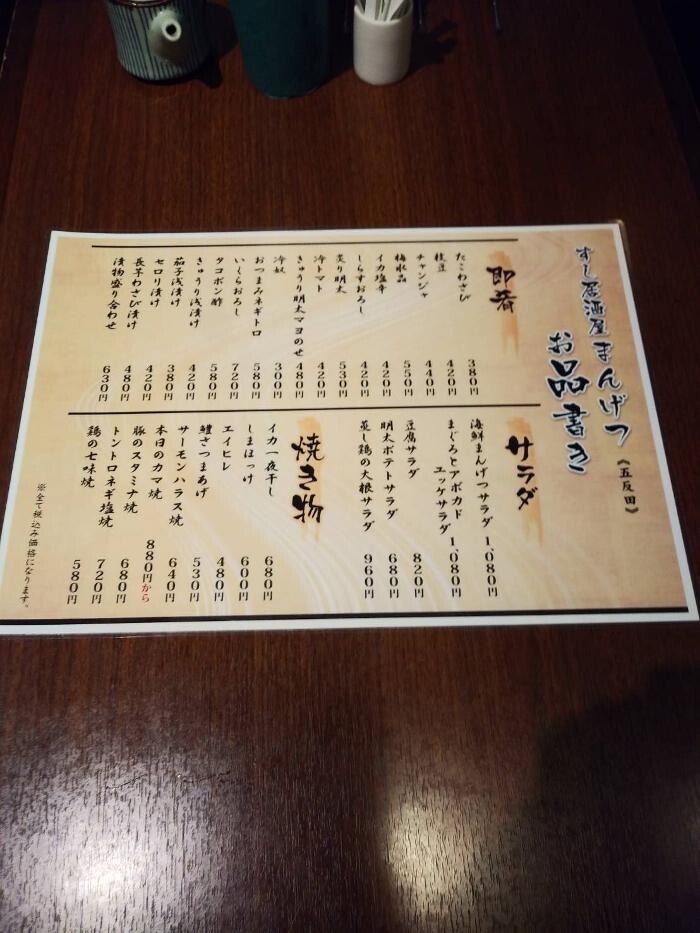 すし居酒屋まんげつ《五反田》
お品書き
即肴
たこわさび 380円
枝豆 420円
チャンジャ 440円
梅水晶 550円
イカ塩辛 420円
しらすおろし 420円
炙り明太 530円
冷トマト 420円
きゅうり明太マヨのせ 480円
冷奴 300円
おつまみネギトロ 580円
いくらおろし 720円
タコポン酢 580円
きゅうり浅漬け 420円
茄子浅漬け 380円
セロリ漬け 420円
長芋わさび漬け 480円
漬物盛り合わせ 630円
サラダ
海鮮まんげつサラダ 1,080円
まぐろとアボカド
ユッケサラダ 1,080円
豆腐サラダ 820円
明太ポテトサラダ 680円
蒸し鶏の大根サラダ 960円
焼き物
イカ一夜干し 680円
しまほっけ 600円
エイヒレ 480円
鱧さつまあげ 530円
サーモンハラス焼 640円
本日のカマ焼 880円から
豚のスタミナ焼 680円
トントロネギ塩焼 720円
鶏の七味焼 580円
※全て税込み価格になります。